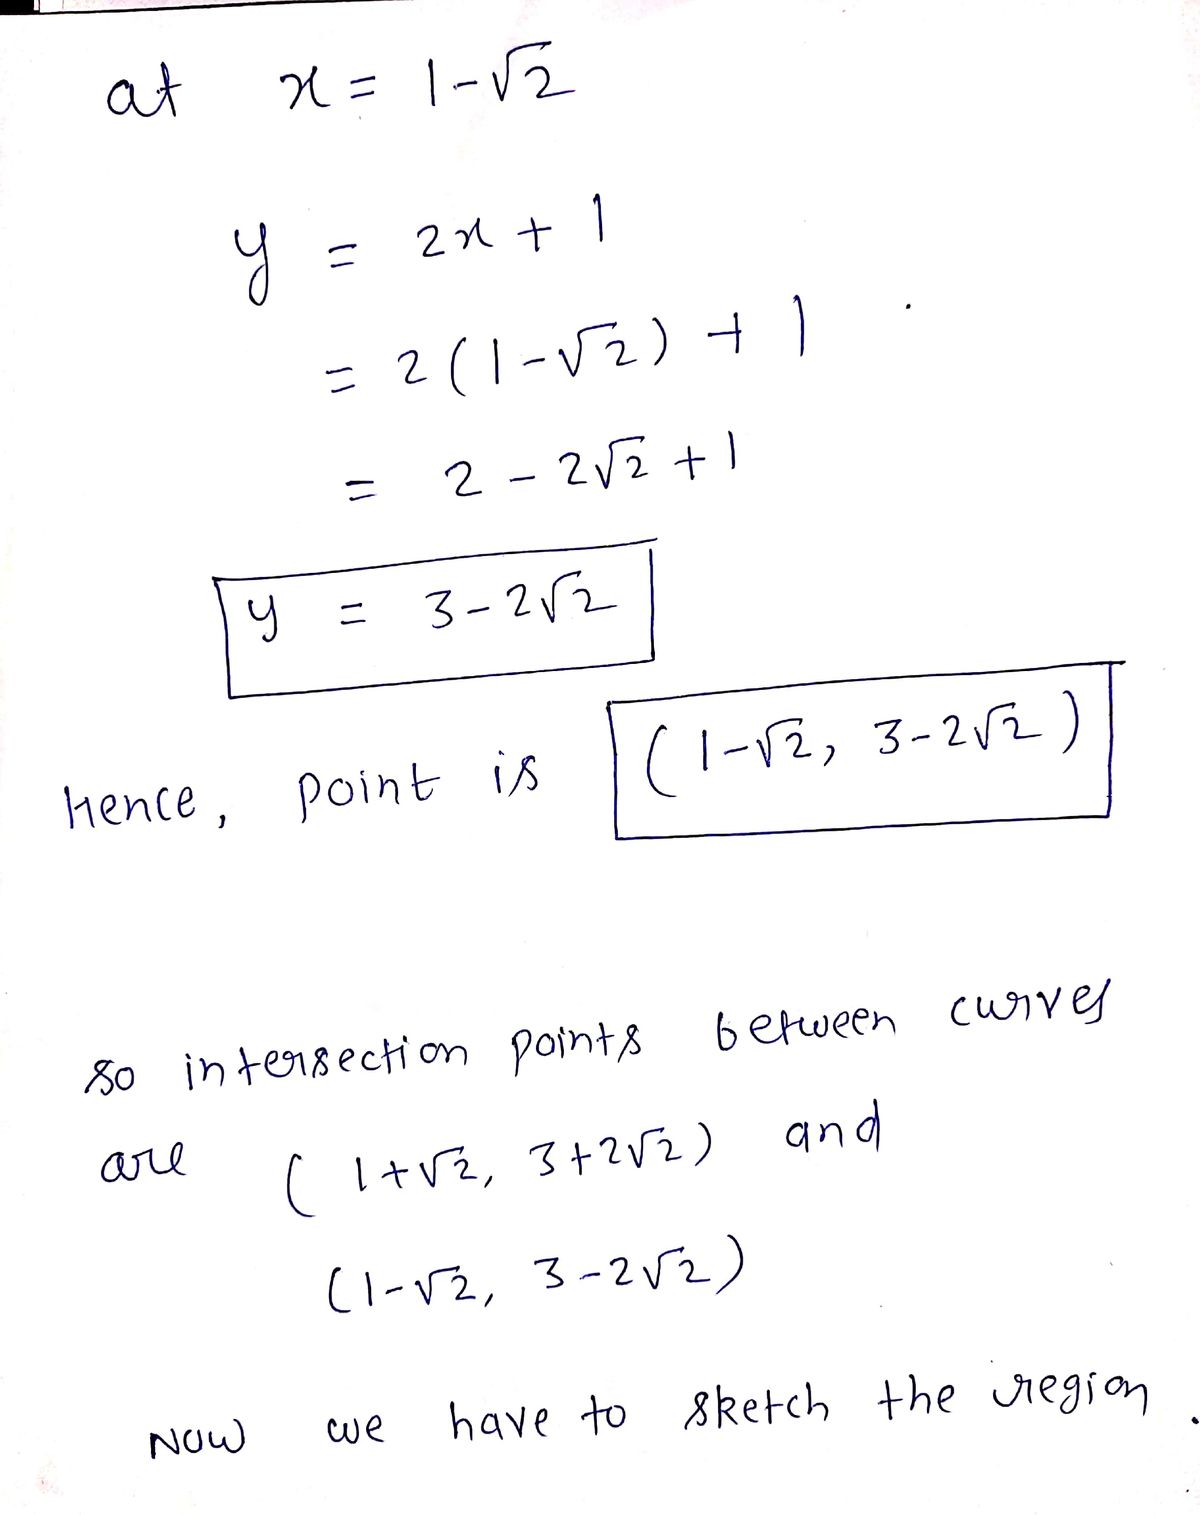 at x = 1-√2
y = 2x + 1
= 2(1-√2) + 1
= 2 - 2√2 + 1
y = 3-2√2
Hence, point is (1-√2, 3-2√2)
so intersection points between curves
are (1+√2, 3+2√2) and
(1-√2, 3-2√2)
Now we have to sketch the region.